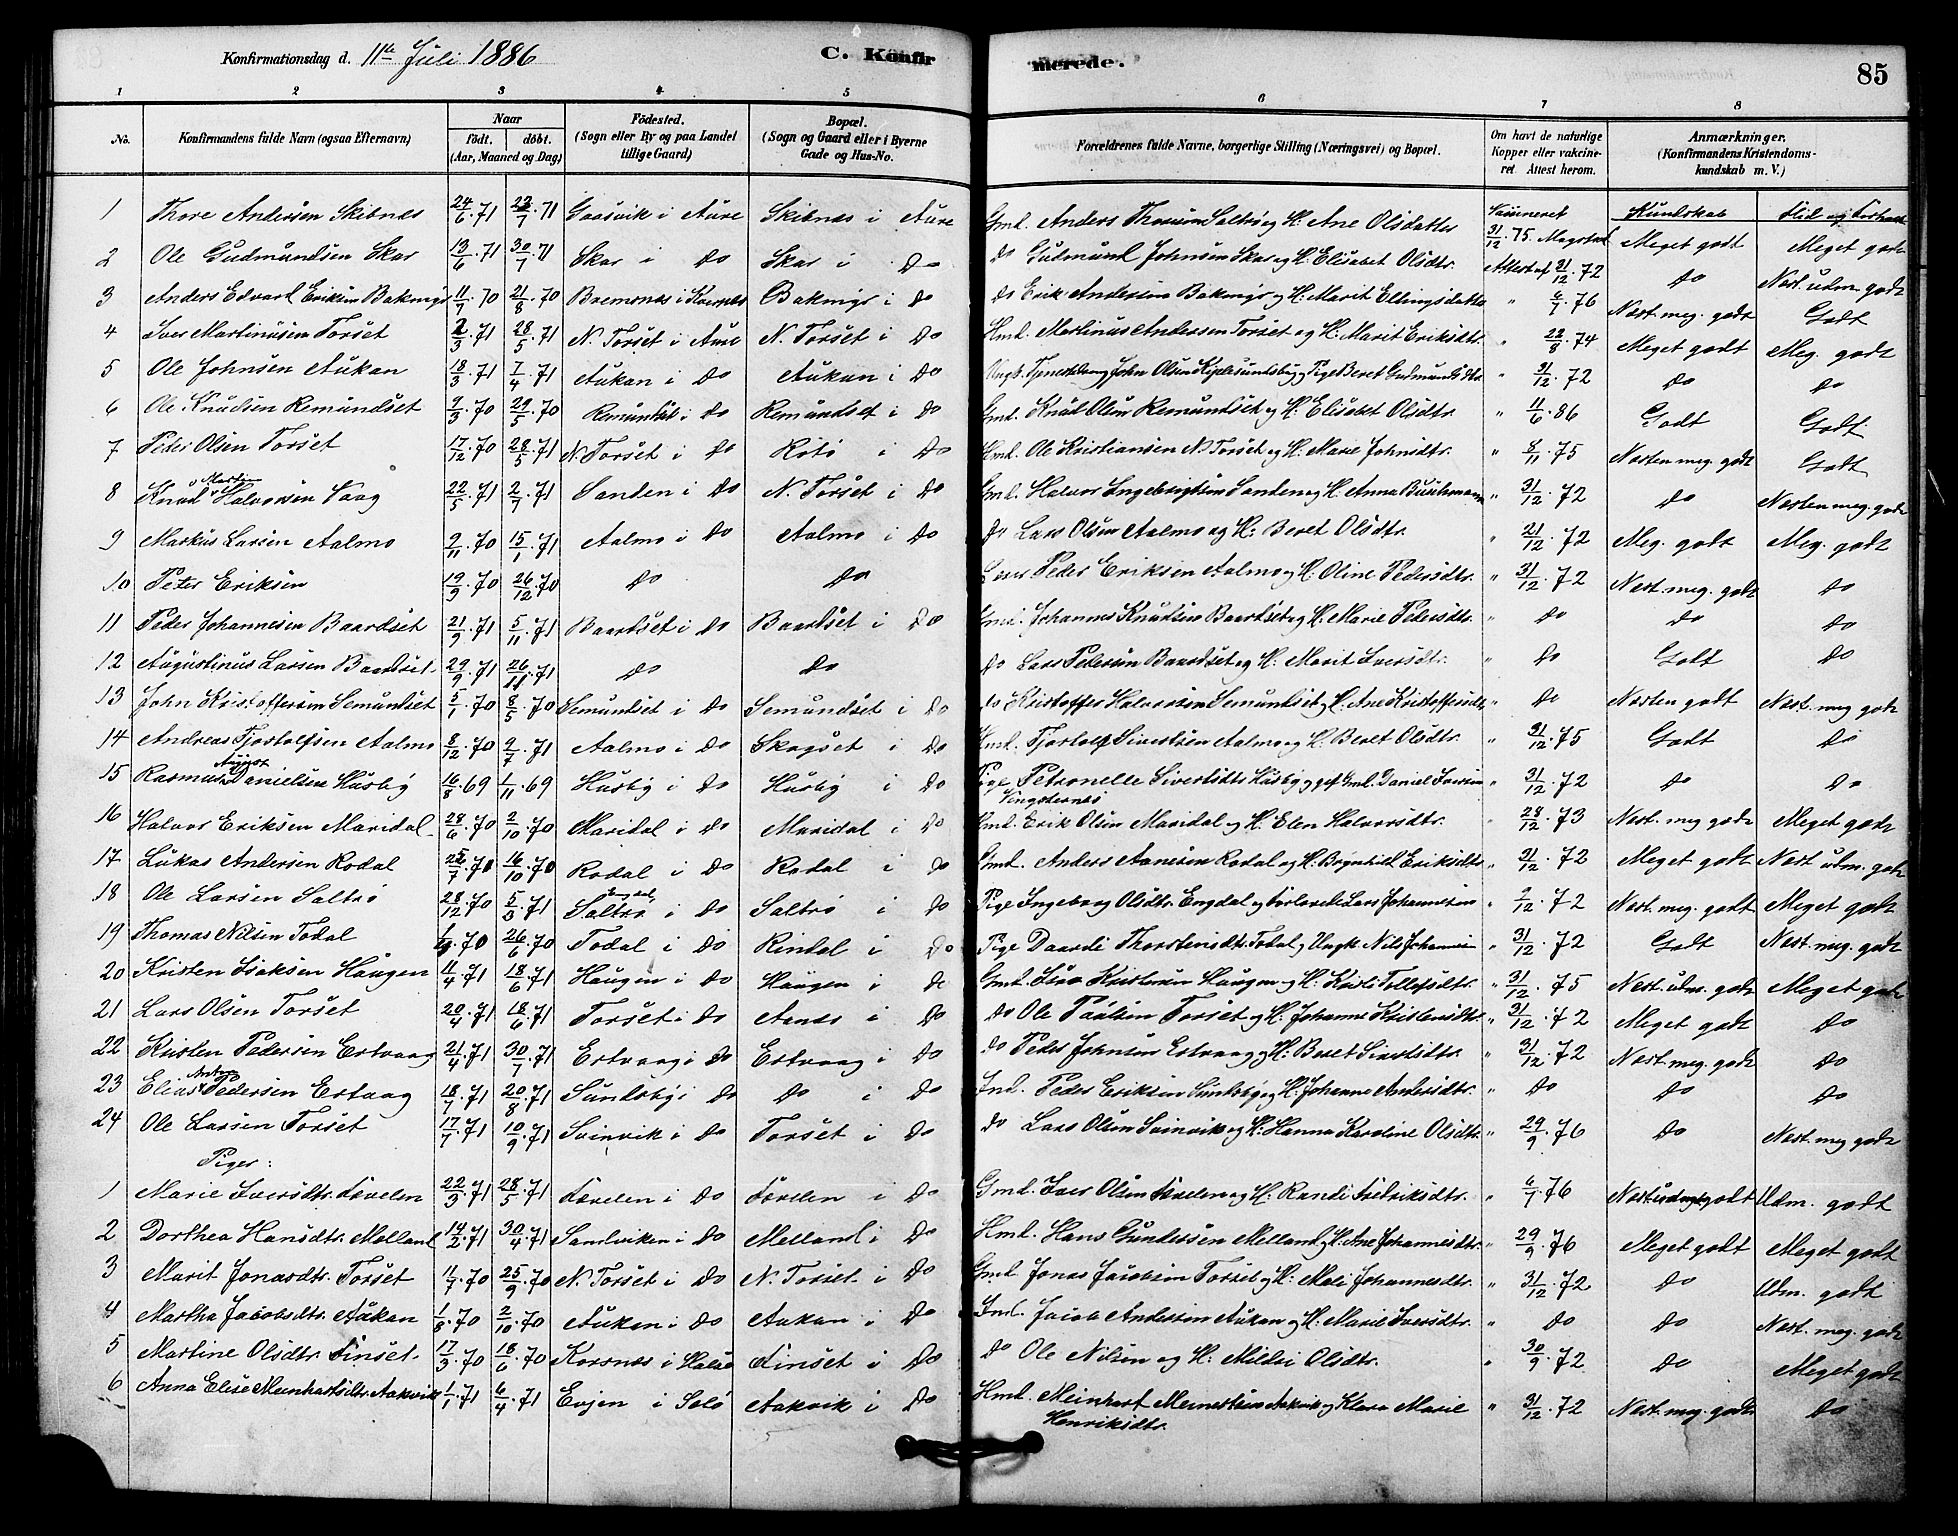 Konfirmationsdag d. 11te Juli 1886 C. Konfirmerede. 85
1 2 3 4 5 6 7 8
No. Konfirmandens fulde Navn (ogsaa Efternavn) Naar født. døbt. (Aar, Maaned og Dag) Fødested. (Sogn eller By og paa Landet tillige Gaard) Bopæl. (Sogn og Gaard eller i Byerne Gade og Hus-No. Forældrenes fulde Navne, borgerlige Stilling (Næringsvei) og Bopæl. Om havt de naturlige Kopper eller vakcineret Attest herom. Anmærkninger, (Konfirmandens Kristendomskundskab m. V.)
Vaccineret Kundskab Flid og Forhold
1 Thore Andersen Skibnæs 24/6.71 23/7.71 Gaasvik i Aure Skibnæs i Aure Gmd. Anders Saltrø og H: Ane Olsdatter 31/12.75 Meget godt Meget godt
2 Ole Gudmundsen Skar 13/6.71 30/7.71 Skar i do Skar i do do Gudmund Johnsen Skar og H: Elisabet Olsdtr. Attest af 31/12.72 do Næst. udm. godt
3 Anders Edvart Eriksen Bakmyr 11/7.70 21/8.70 Bremsnæs i Kvernes Bakmyr i do do Erik Andersen Bakmyr og H: Marit Ellingsdatter " 6/7.76 Næst. meg. godt Godt
4 Iver Martinusen Torset 2/3.71 28/5.71 N. Torset i Aure N. Torset i do Hmd. Martinus Andersen Torset og H: Marit Eriksdtr. " 22/8.74 Meget godt Meg. godt
5 Ole Johnsen Aukan 18/3.71 7/4.71 Aukan i do Aukan i do John Olsen og Pige Beret Gudmundsdtr. " 31/12.72 do do
6 Ole Knudsen Remundset 9/3.70 29/5.70 Remundset i do Remundset i do Gmd. Knud Olsen Remundset og H: Elisabet Olsdtr. " 11/6.86 Godt Godt
7 Peder Olsen Torset 17/12.70 28/5.71 N. Torset i do Rotø i do Hmd. Ole Kristiansen N. Torset og H: Marie Johnsdtr. " 8/11.75 Næsten meg. godt Godt
8 Knud Martin Halvorsen Vaag 22/5.71 2/7.71 Sanden i do N. Torset i do Gmd. Halvor Ingebrigtsen Sanden og H: Anna Buschmann " 31/12.72 do Næsten meg. godt
9 Markus Larsen Aalmo 9/11.70 15/1.71 Aalmo i do Aalmo i do do Lars Olsen Aalmo og H: Beret Olsdtr. " 31/12.72 Meg. godt Meg. godt
10 Peter Eriksen 19/9.70 26/12.70 do do Peder Eriksen Aalmo og H: Oline Pedersdtr. " 31/12.72 Næst. meg. godt do
11 Peder Johannesen Baardset 21/9.71 5/11.71 Baardset i do Baardset i do Gmd. Johannes Knudsen Baardset og H: Marie Pedersdtr. " do do do
12 Augustinus Larsen Baardset 29/9.71 26/11.71 do do do Lars Pedersen Baardset og H: Marit Iversdtr. " do Godt do
13 John Kristoffersen Semundset 5/1.70 8/5.70 Semundset i do Semundset i do do Kristoffer Halvorsen Semundset og H: Ane Kristoffersdtr. " do Næsten godt Næst. meg godt
14 Andreas Tjostolfsen Aalmo 8/12.70 9/7.71 Aalmo i do Skogset i do Hmd. Tjostolf Sivertsen Aalmo og H: Beret Olsdtr. " 31/12.75 Godt do
15 Rasmus August Danielsen Husby 16/8.69 1/11.69 Husby i do Husby i do Pige Petronelle Sivertsdtr Husby og gift Gmd. Daniel Iversen Vingsternæs " 31/12.72 do do
16 Halvor Eriksen Maridal 28/6.70 2/10.70 Maridal i do Maridal i do Hmd. Erik Olsen Maridal og H: Elen Halvorsdtr. " 28/12.73 Næst. meg godt Meget godt
17 Lukas Andersen Rodal 25/7.70 16/10.70 Rodal i do Rodal i do Gmd. Anders Aanesen Rodal og H: Brynhild Eriksdtr " 31/12.72 Meget godt Næst udm. godt
18 Ole Larsen Saltrø 28/12.70 5/3.71 Engdal Saltrø i do Saltrø i do Pige Ingeborg Olsdtr. Engdal og forlovede Lars Johannesen " 9/12.72 Næst. meg. godt Meget godt
19 Thomas Nilsen Todal 70 26/6.70 Todal i do Rindal i do Pige Daardi Thorstensdtr. Todal og Ungk. Nils Johannesen " 31/12.72 Godt Næst. meg. godt
20 Kristen Isaksen Haugen 11/4.71 18/6.71 Haugen i do Haugen i do Gmd. Isac Kristensen Haugen og H: Kirsti Tollefsdtr. " 31/12.75 Næst. udm. godt Meget godt
21 Lars Olsen Torset 20/4.71 18/6.71 Torset i do Aanes i do do Ole Paulsen Torset og H: Johanna Kristensdtr. " 31/12.72 Meget godt do
22 Kristen Pedersen Ertvaag 21/4.71 30/7.71 Ertvaag i do Ertvaag i do do Peder Johnsen Ertvaag og H: Beret Sivertsdtr. " 31/12.72 Næst. meg. godt do
23 Elias Anton Pedersen Ertvaag 18/7.71 20/8.71 Sundsby i do do i do Ind. Peder Eriksen Sundsby og H: Johanna Andersdtr. " do do do
24 Ole Larsen Torset 17/7.71 10/9.71 Svinvik i do Torset i do do Lars Olsen Svinvik og H: Hanna Karoline Olsdtr. " 29/9.76 do Næst. meg godt
Piger:
1 Marie Iversdtr. Lervolen 22/3.71 28/5.71 i do i do Gmd. Iver Olsen og H: Randi Fredriksdtr. " 6/7.76 Næst udmgodt Udm. godt
2 Dorthea Hansdtr. Melland 14/2.71 30/4.71 Sandviken i do Melland i do Hmd. Hans Gundersen Melland og H: Ane Johannesdtr. " 29/9.76 Meget godt Meget godt
3 Marit Jonasdtr. Torset 11/7.70 25/9.70 N. Torset i do N. Torset i do Gmd. Jonas Jacobsen Torset og H: Mali Johannesdtr. " 31/12.72 do Udm. godt
4 Martha Jacobsdtr. Aukan 1/8.70 2/10.70 Aukan i do Aukan i do Ind. Jacob Andersen Aukan og H: Marie Iversdtr. " do do Næst. meg. godt
5 Martine Olsdtr. Finset. 17/3.70 18/6.70 Korsnæs i Halse Finset i do do Ole Nilsen og H: Mildri Olsdtr. " 30/9.72 do Meget godt
6 Anna Elise Meinhartsdtr. Aakvik 1/1.71 6/4.71 Evjen i Aakvik i do Hmd. Meinhart Aakvik og Klara Marie Henriksdtr. " 31/12.72 Næst. meg. godt do